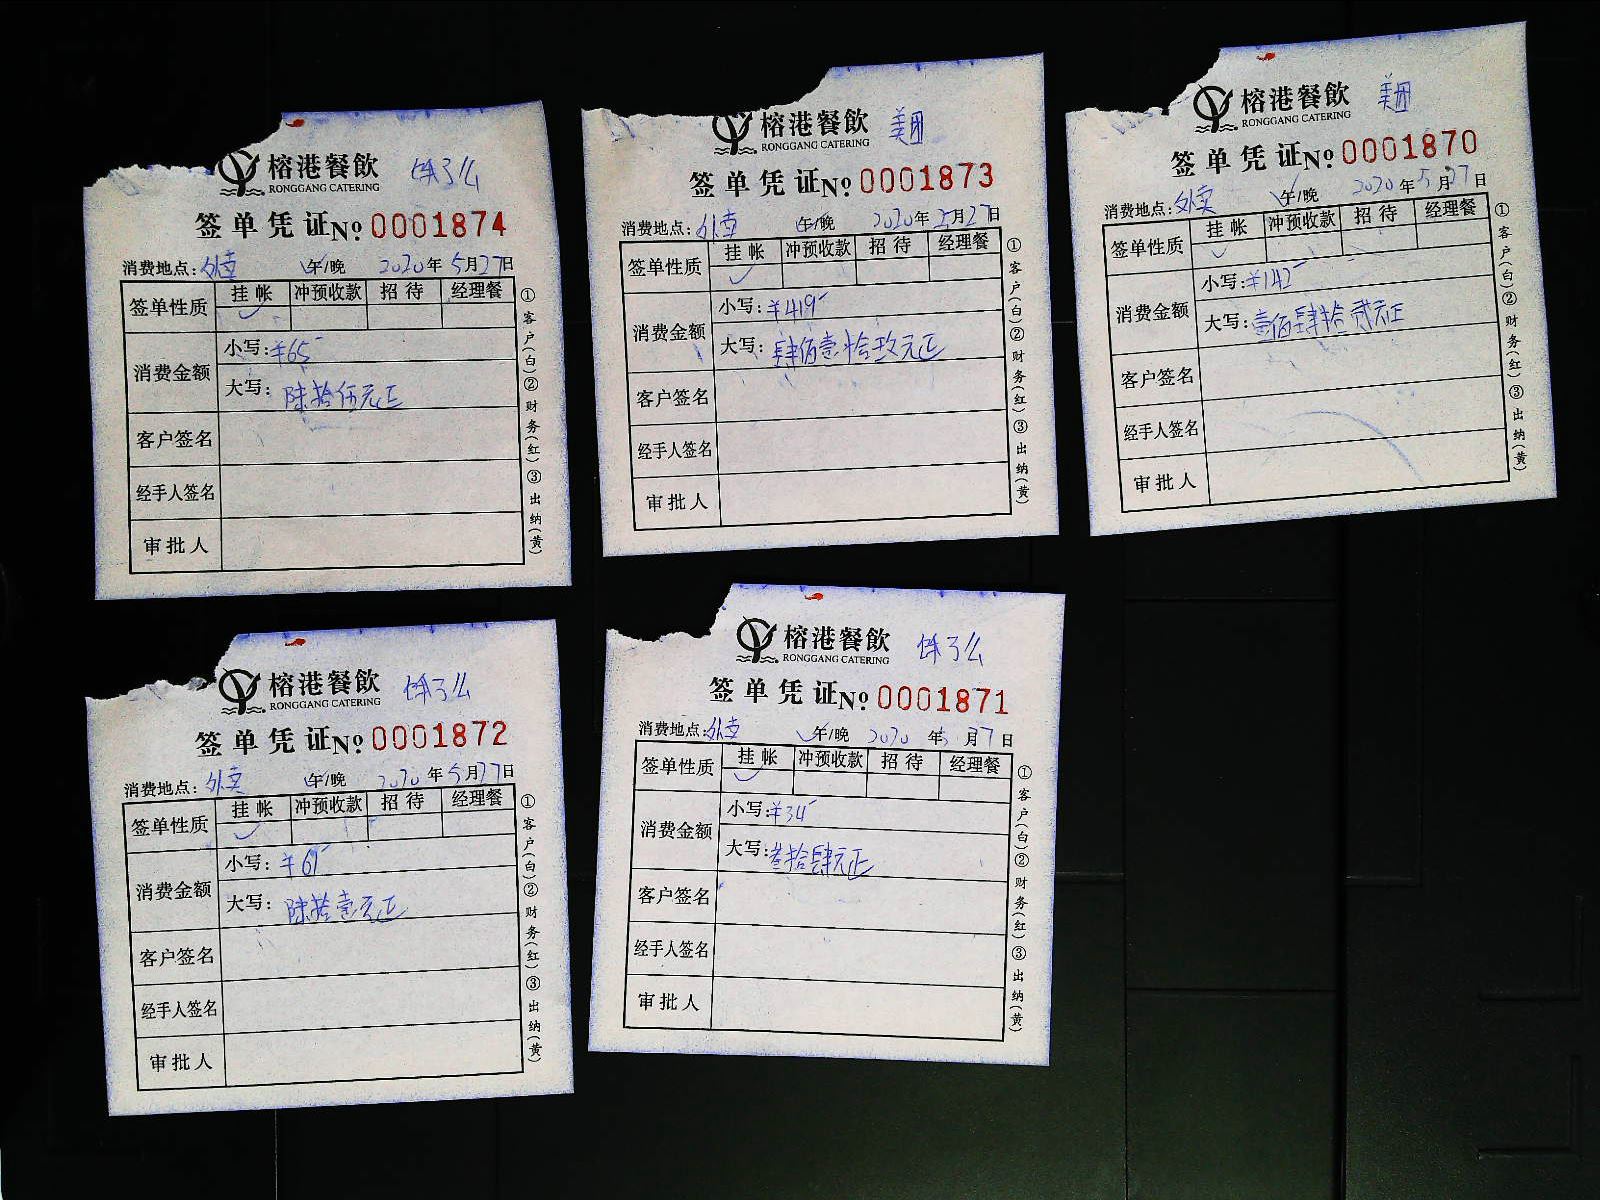 榕港餐飲 饿了么
RONGGANG CATERING
签单凭证 № 0001874
消费地点: 外卖 午/晚 2020年5月27日
签单性质 挂帐 冲预收款 招待 经理餐
消费金额 小写: ¥65
大写: 陆拾伍元正
客户签名
经手人签名
审批人
①客户(白)②财务(红)③出纳(黄)
榕港餐飲 美团
RONGGANG CATERING
签单凭证 № 0001873
消费地点: 外卖 午/晚 2020年5月27日
签单性质 挂帐 冲预收款 招待 经理餐
消费金额 小写: ¥419
大写: 肆佰壹拾玖元正
客户签名
经手人签名
审批人
①客户(白)②财务(红)③出纳(黄)
榕港餐飲 美团
RONGGANG CATERING
签单凭证 № 0001870
消费地点: 外卖 午/晚 2020年5月27日
签单性质 挂帐 冲预收款 招待 经理餐
消费金额 小写: ¥142
大写: 壹佰肆拾贰元正
客户签名
经手人签名
审批人
①客户(白)②财务(红)③出纳(黄)
榕港餐飲 饿了么
RONGGANG CATERING
签单凭证 № 0001872
消费地点: 外卖 午/晚 2020年5月27日
签单性质 挂帐 冲预收款 招待 经理餐
消费金额 小写: ¥61
大写: 陆拾壹元正
客户签名
经手人签名
审批人
①客户(白)②财务(红)③出纳(黄)
榕港餐飲 饿了么
RONGGANG CATERING
签单凭证 № 0001871
消费地点: 外卖 午/晚 2020年5月7日
签单性质 挂帐 冲预收款 招待 经理餐
消费金额 小写: ¥34
大写: 叁拾肆元正
客户签名
经手人签名
审批人
①客户(白)②财务(红)③出纳(黄)